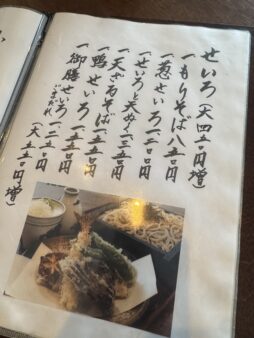 せいろ(大四五〇円増)
一もりそば 八五〇円
一葱せいろ 一、一二〇円
一せいろと天ぬき 一、三五〇円
一天ざるそば 一、五五〇円
一鴨せいろ 一、五五〇円
一御膳せいろ 一、二五〇円
ごまだれ
(大五五〇円増)